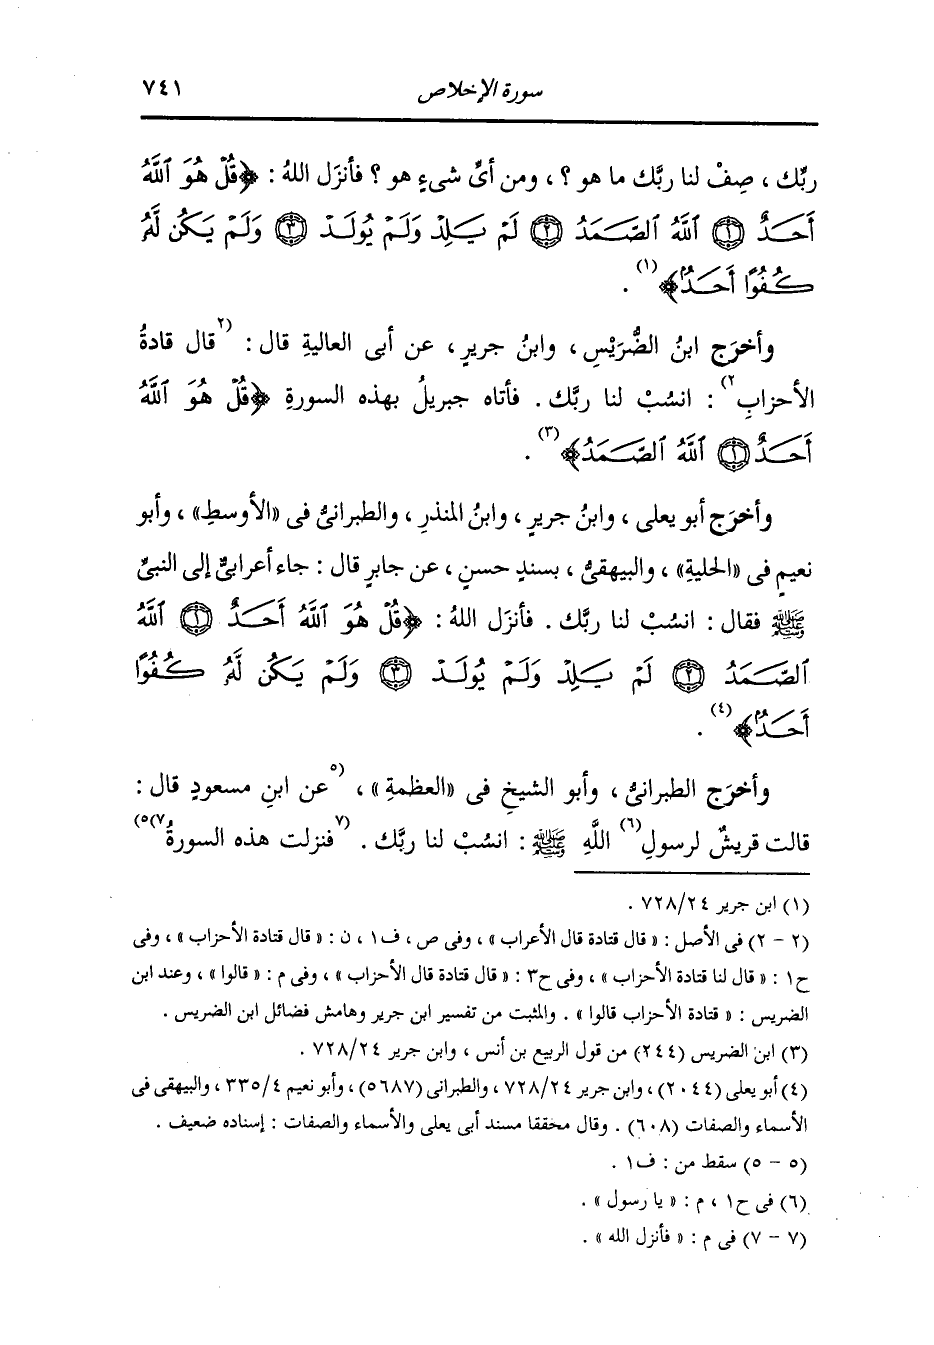 سورة الإخلاص ٧٤١
ربِّك ، صِفْ لنا ربَّك ما هو ؟ ، ومن أىِّ شىءٍ هو ؟ فأنزَل اللهُ : ﴿قُلْ هُوَ ٱللَّهُ
أَحَدٌ ۝١ ٱللَّهُ ٱلصَّمَدُ ۝٢ لَمْ يَلِدْ وَلَمْ يُولَدْ ۝٣ وَلَمْ يَكُن لَّهُۥ
كُفُوًا أَحَدٌۢ﴾(١) .
وأخرَج ابنُ الضُّرَيْسِ ، وابنُ جريرٍ ، عن أبى العاليةِ قال : (٢قال قادةُ
الأحزابِ٢) : انسُبْ لنا ربَّك . فأتاه جبريلُ بهذه السورةِ ﴿قُلْ هُوَ ٱللَّهُ
أَحَدٌ ۝١ ٱللَّهُ ٱلصَّمَدُ﴾(٣) .
وأخرَج أبو يعلى ، وابنُ جريرٍ ، وابنُ المنذرِ ، والطبرانىُّ فى «الأوسطِ» ، وأبو
نعيمٍ فى «الحليةِ» ، والبيهقىُّ ، بسندٍ حسنٍ ، عن جابرٍ قال : جاء أعرابىٌّ إلى النبىِّ
ﷺ فقال : انسُبْ لنا ربَّك . فأنزَل اللهُ : ﴿قُلْ هُوَ ٱللَّهُ أَحَدٌ ۝١ ٱللَّهُ
ٱلصَّمَدُ ۝٢ لَمْ يَلِدْ وَلَمْ يُولَدْ ۝٣ وَلَمْ يَكُن لَّهُۥ كُفُوًا
أَحَدٌۢ﴾(٤) .
وأخرَج الطبرانىُّ ، وأبو الشيخِ فى «العظمةِ» ، (٥عن ابنِ مسعودٍ قال :
قالت قريشٌ لرسولِ(٦) اللَّهِ ﷺ : انسُبْ لنا ربَّك . (٧فنزلت هذه السورةُ٧)٥)
(١) ابن جرير ٧٢٨/٢٤ .
(٢ - ٢) فى الأصل : « قال قتادة قال الأعراب » ، وفى ص ، ف١ ، ن : « قال قتادة الأحزاب » ، وفى
ح١ : « قال لنا قتادة الأحزاب » ، وفى ح٣ : « قال قتادة قال الأحزاب » ، وفى م : « قالوا » ، وعند ابن
الضريس : « قتادة الأحزاب قالوا » . والمثبت من تفسير ابن جرير وهامش فضائل ابن الضريس .
(٣) ابن الضريس (٢٤٤) من قول الربيع بن أنس ، وابن جرير ٧٢٨/٢٤ .
(٤) أبو يعلى (٢٠٤٤) ، وابن جرير ٧٢٨/٢٤ ، والطبرانى (٥٦٨٧) ، وأبو نعيم ٣٣٥/٤ ، والبيهقى فى
الأسماء والصفات (٦٠٨) . وقال محققا مسند أبى يعلى والأسماء والصفات : إسناده ضعيف .
(٥ - ٥) سقط من : ف١ .
(٦) فى ح١ ، م : « يا رسول » .
(٧ - ٧) فى م : « فأنزل الله » .